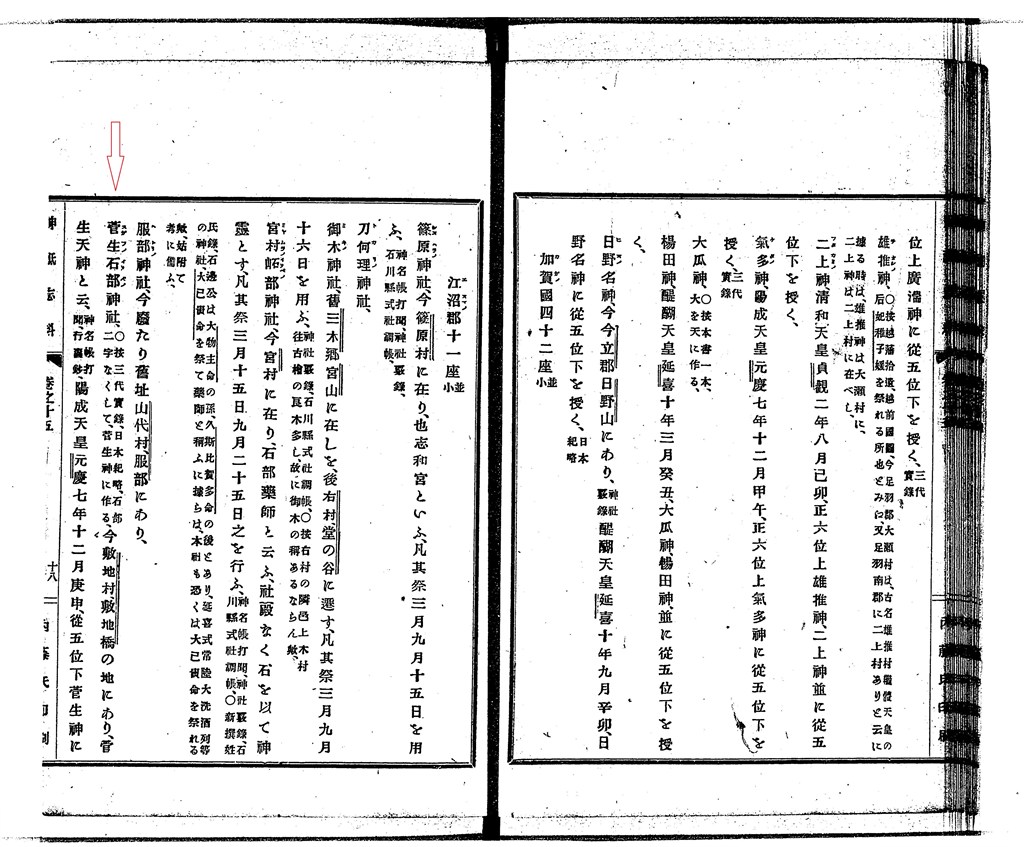 位上廣濡神に從五位下を授く、三代實錄
雄推神、〇按越藩拾遺、越前國圖、今足羽郡大瀬村は、古名雄推村繼體天皇の后妃稚子媛を祭れる所也とみに又足羽南郡に二上村ありと云に
據る時は、雄推神は大瀬村に、二上神は二上村に在べし、
二上神清和天皇貞觀二年八月己卯、正六位上雄推神、二上神並に從五
位下を授く、
氣多神、陽成天皇元慶七年十二月甲午、正六位上氣多神に從五位下を
授く、三代實錄
大瓜神、〇按本書一本、大を天に作る、
楊田神、醍醐天皇延喜十年三月癸丑、大瓜神、楊田神、並に從五位下を授
く、
日野名神、今今立郡日野山にあり、神社覈錄醍醐天皇延喜十年九月辛卯、日
野名神に從五位下を授く、日本紀略
加賀國四十二座並小
江沼郡十一座並小
篠原神社、今篠原村に在り、也志和宮といふ、凡其祭三月九月十五日を用
ふ、神名帳打聞、神社覈錄、石川縣式社調帳、
刀何理神社、
御木神社、舊三木鄕宮山に在しを、後右村堂の谷に遷す凡其祭三月九月
十六日を用ふ、神社覈錄石川縣式社調帳、〇按右村の隣邑上木村往古檜の良木多し、故に御木の稱あるならん歟、
宮村岻部神社、今宮村に在り、石部藥師と云ふ、社殿なく石を以て神
靈とす凡其祭三月十五日九月二十五日之を行ふ、神名帳打聞、神社覈錄、石川縣式社調帳、〇新撰姓
氏錄石邊公は大物主命の孫、久斯比賀多命の後とあり、延喜式常陸大洗酒列等の神社、大己貴命を祭て藥師と稱ふに據らは、本社も恐くは大己貴命を祭れる
歟、姑附て考に備ふ、
服部神社今廢たり舊址山代村、服部にあり、
菅生石部神社、〇按三代實錄、日本紀略、石部二字なくして、菅生神に作る、今敷地村、敷地橋の地にあり、菅
生天神と云、神名帳打聞、行囊鈔、陽成天皇元慶七年十二月庚申、從五位下菅生神に
神祇志料 卷之十五 十八